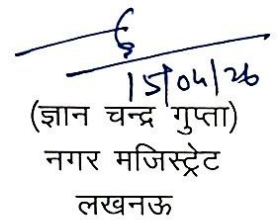 15/04/26
(ज्ञान चन्द्र गुप्ता)
नगर मजिस्ट्रेट
लखनऊ